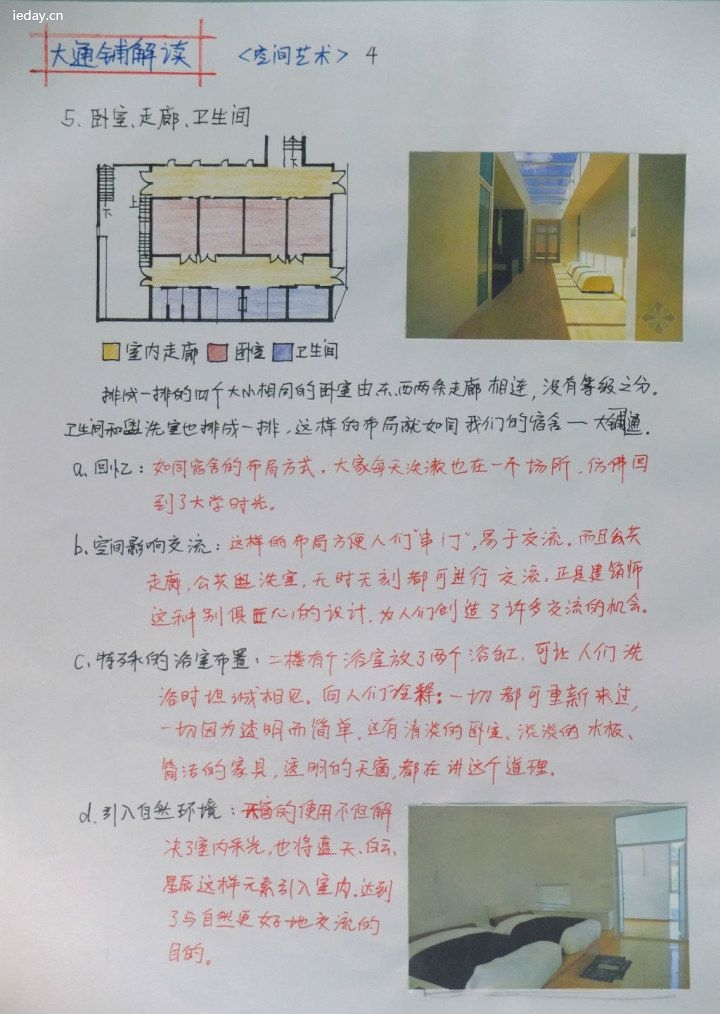 ieday.cn
大通铺解读 <空间艺术> 4
5. 卧室、走廊、卫生间
下
下
上
室内走廊 卧室 卫生间
排成一排的四个大小相同的卧室由东、西两条走廊相连，没有等级之分。
卫生间和盥洗室也排成一排，这样的布局就如同我们的宿舍—大铺通。
a. 回忆：如同宿舍的布局方式，大家每天洗漱也在一个场所，仿佛回
到了大学时光。
b. 空间影响交流：这样的布局方便人们“串门”，易于交流。而且公共
走廊，公共盥洗室，无时无刻都可进行交流，正是建筑师
这种别俱匠心的设计，为人们创造了许多交流的机会。
c. 特殊的浴室布置：二楼有个浴室放了两个浴缸，可让人们洗
浴时坦诚相见。向人们诠释：一切都可重新来过，
一切因为透明而简单，还有清淡的卧室、淡淡的木板、
简洁的家具，透明的天窗，都在讲这个道理。
d. 引入自然环境：天窗的使用不但解
决了室内采光，也将蓝天、白云、
星辰这样元素引入室内，达到
了与自然更好地交流的
目的。